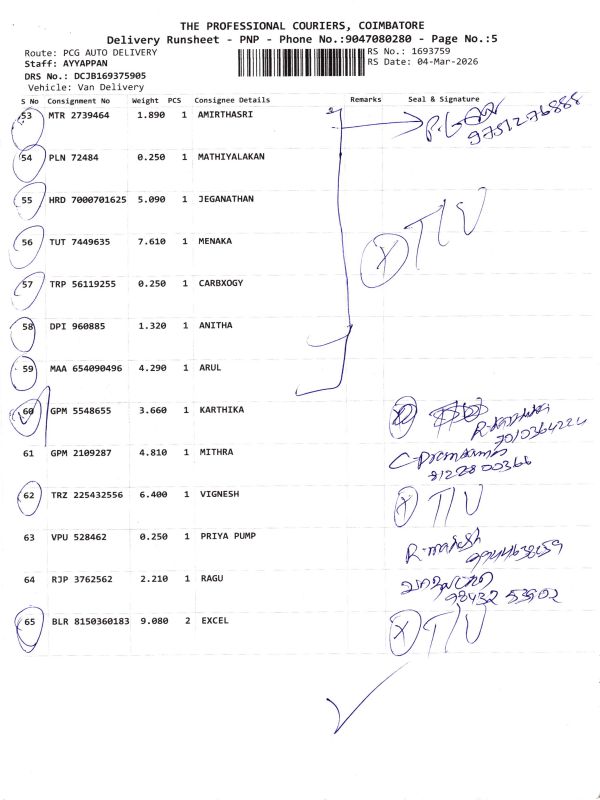 THE PROFESSIONAL COURIERS, COIMBATORE
Delivery Runsheet - PNP - Phone No.:9047080280 - Page No.:5
Route: PCG AUTO DELIVERY
RS No.: 1693759
Staff: AYYAPPAN
RS Date: 04-Mar-2026
DRS No.: DCJB169375905
Vehicle: Van Delivery
S No Consignment No Weight PCS Consignee Details Remarks Seal & Signature
53 MTR 2739464 1.890 1 AMIRTHASRI
97512 76888
54 PLN 72484 0.250 1 MATHIYALAKAN
55 HRD 7000701625 5.090 1 JEGANATHAN
56 TUT 7449635 7.610 1 MENAKA X T/U
57 TRP 56119255 0.250 1 CARBXOGY
58 DPI 960885 1.320 1 ANITHA
59 MAA 654090496 4.290 1 ARUL
60 GPM 5548655 3.660 1 KARTHIKA
61 GPM 2109287 4.810 1 MITHRA
62 TRZ 225432556 6.400 1 VIGNESH X T/U
63 VPU 528462 0.250 1 PRIYA PUMP
64 RJP 3762562 2.210 1 RAGU
98432 53902
65 BLR 8150360183 9.080 2 EXCEL X T/U